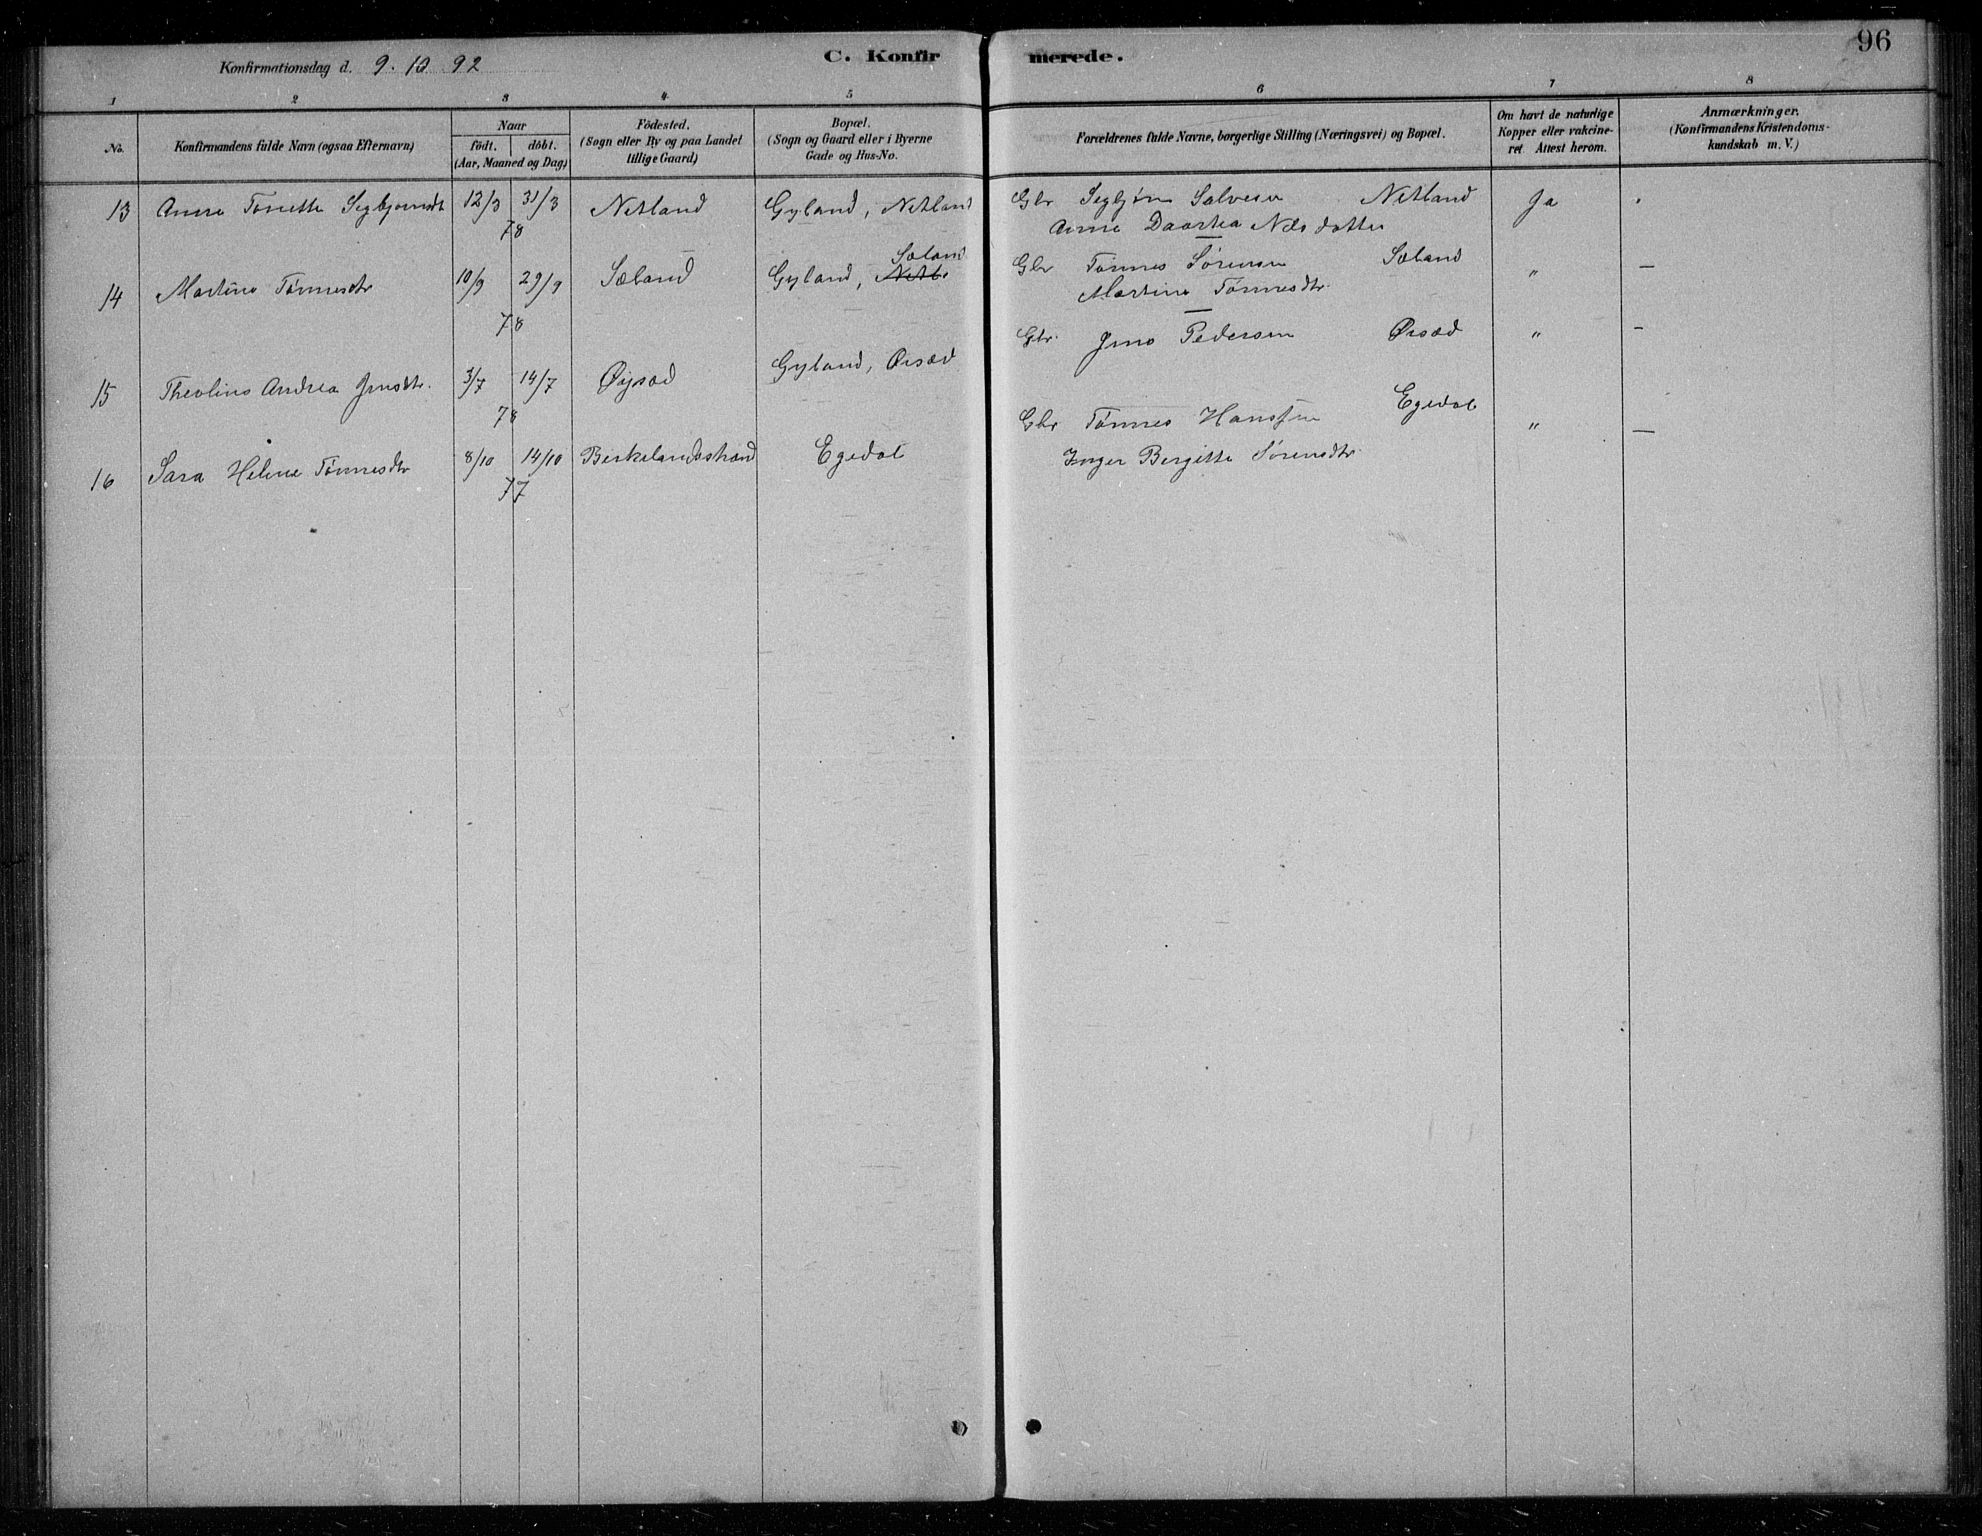 96
Konfirmationsdag d. 9. 10 92
C. Konfirmerede.
1 2 3 4 5 6 7 8
No.
Konfirmandens fulde Navn (ogsaa Efternavn)
Naar
födt. döbt.
(Aar, Maaned og Dag)
Födested.
(Sogn eller By og paa Landet
tillige Gaard)
Bopæl.
(Sogn og Gaard eller i Byerne
Gade og Hus-No.
Forældrenes fulde Navne, borgerlige Stilling (Næringsvei) og Bopæl.
Om havt de naturlige
Kopper eller vakcine-
ret. Attest herom.
Anmærkninger.
(Konfirmandens Kristendoms-
kundskab m. V.)
13 Anna Tonette Segbjornsdt 12/3 31/3 Netland Gyland, Netland Gbr Segbjørn Salvesen Netland Ja
78 Anne Daartea Nilsdatter
Sæland
14 Martine Tønnesdtr 10/9 29/9 Sæland Gyland, Netl. Gbr Tønnes Sørensen Sæland " —
78 Martine Tønnesdtr.
Gbr. Jens Pedersen Øisæd " –
15 Theoline Andrea Jensdtr. 3/7 14/7 Øysæd Gyland, Øisæd
78
Gbr Tønnes Hanssen Egedal " —
16 Sara Heline Tønnesdtr 8/10 14/10 Birkelandsstrand Egedal Inger Bergitte Sørensdtr.
77